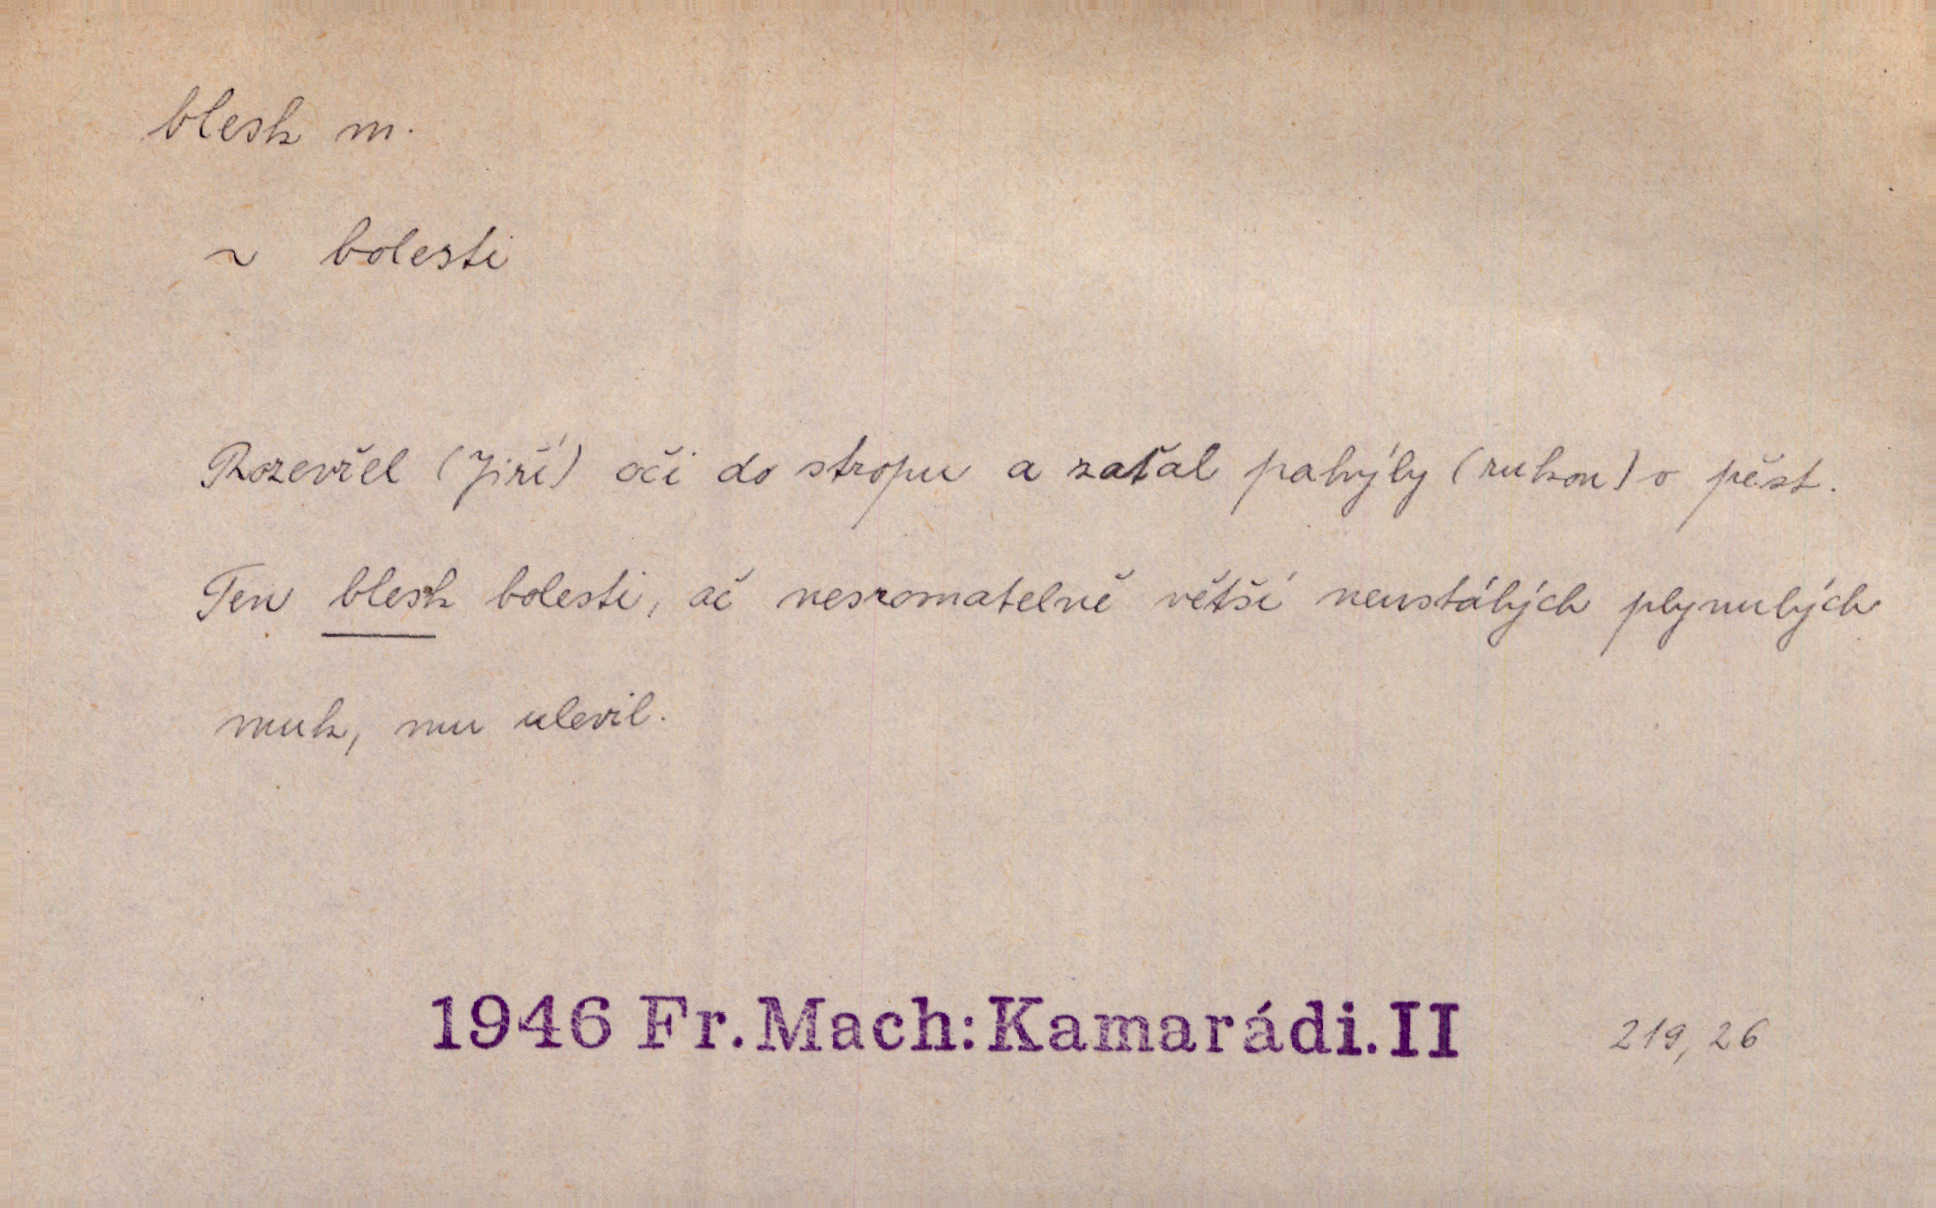 blesk m.
~ bolesti
Rozevřel (Jiří) oči do stropu a zaťal pahýly (rukou) v pěst.
Ten blesk bolesti, ač nesrovnatelně větší neustálých plynulých
muk, mu ulevil.
1946 Fr. Mach: Kamarádi. II 219, 26